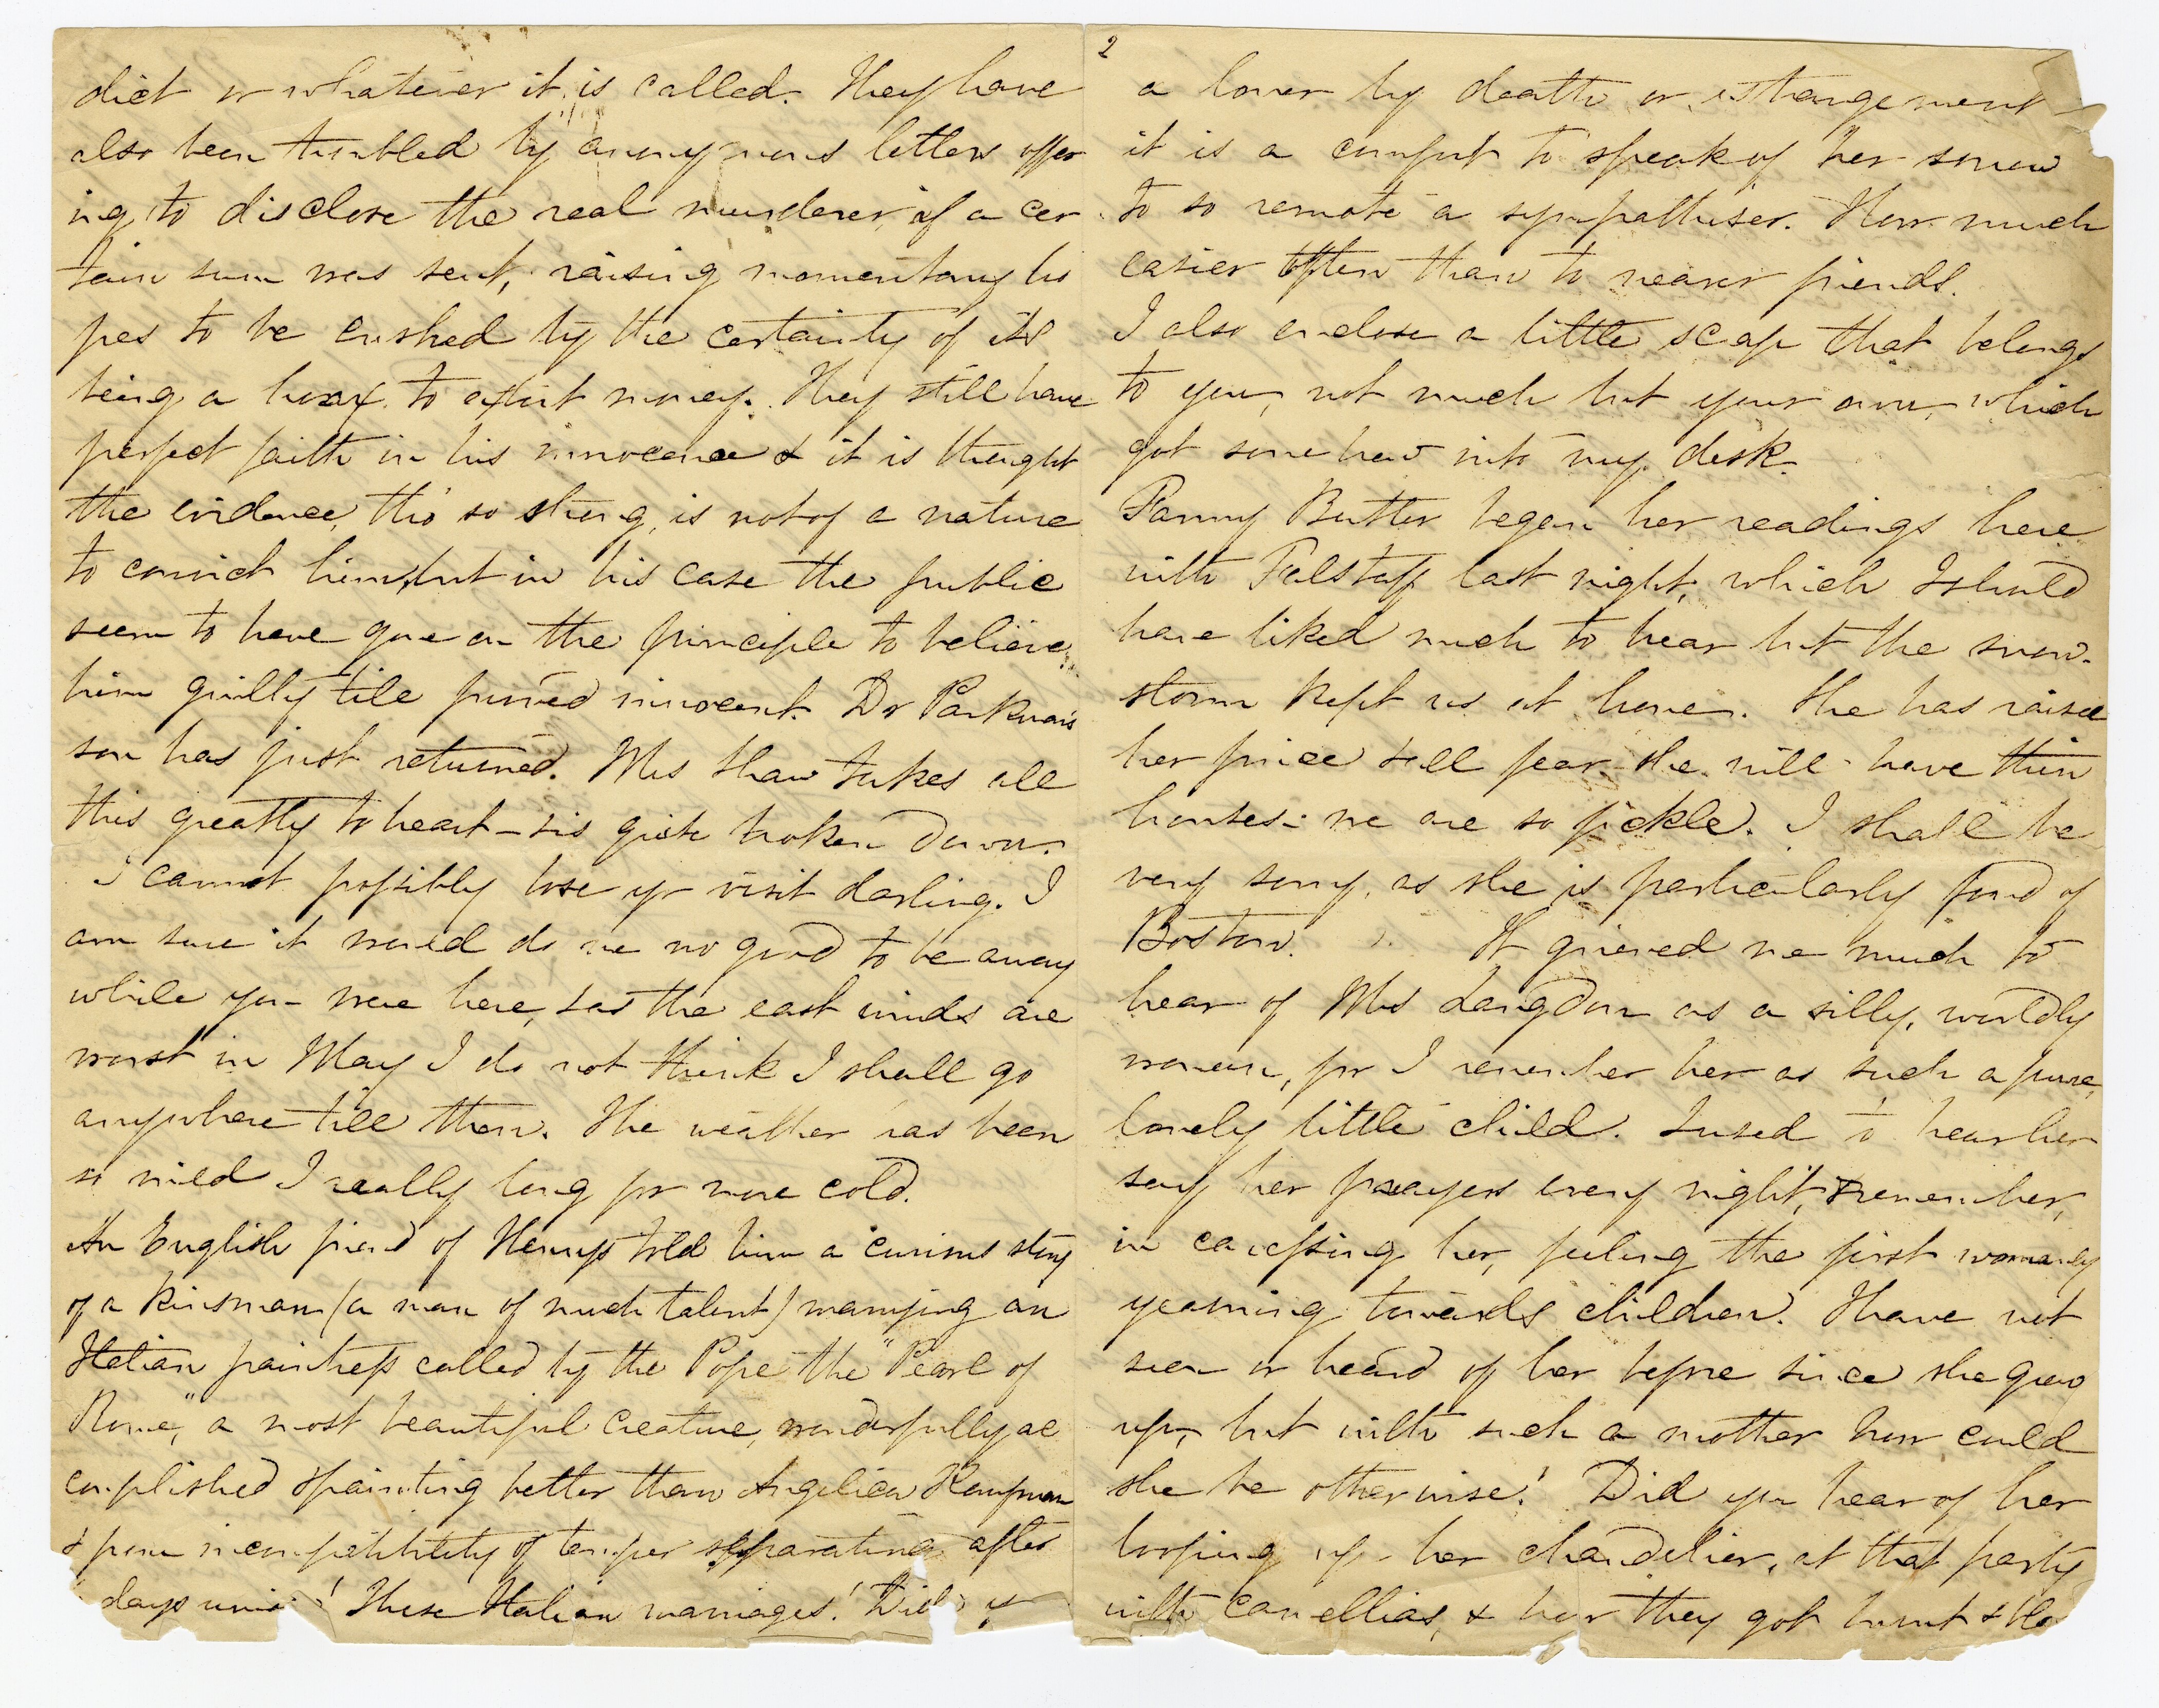 dict or whatever it is called. They have
also been troubled by anonymous letters offer
ing to disclose the real murderer if a cer
tain sum was sent, raising momentary ho
pes to be crushed by the certainty of its
being a hoax to extort money. They still have
perfect faith in his innocence & it is thought
the evidence, tho' so strong, is not of a nature
to convict him, but in his case the public
seem to have gone on the principle to believe
him guilty till proved innocent. Dr Parkman's
son has just returned. Mrs Shaw takes all
this greatly to heart – is quite broken down.
I cannot possibly lose yr visit darling. I
am sure it would do me no good to be away
while you were here, & as the east winds are
worst in May I do not think I shall go
anywhere till then. The weather has been
so mild I really long for more cold.
An English friend of Henry's told him a curious story
of a kinsman (a man of much talent) marrying an
Italian paintress called by the Pope the "Pearl of
Rome," a most beautiful creature, wonderfully ac
complished & painting better than Angelica Kaufman
& from incompatibility of temper separating after
days union! These Italian marriages! Did y
2
a lover by death or estrangement
it is a comfort to speak of her sorrow
to so remote a sympathiser. How much
easier often than to nearer friends.
I also enclose a little scap that belongs
to you, not much but your own, which
got somehow into my desk.
Fanny Butler began her readings here
with Falstaff last night, which I should
have liked much to hear but the snow-
storm kept us at home. She has raised
her price & all fear she will have thin
houses – we are so fickle. I shall be
very sorry, as she is particularly fond of
Boston. It grieved me much to
hear of Mrs Langdon as a silly, worldly
woman, for I remember her as such a pure,
lovely little child. I used to hear her
say her prayers every night, & remember,
in caressing her, feeling the first womanly
yearning towards children. I have not
seen or heard of her before since she grew
up, but with such a mother how could
she be otherwise! Did you hear of her
looping up her chandelier, at that party
with camellias, & how they got burnt &